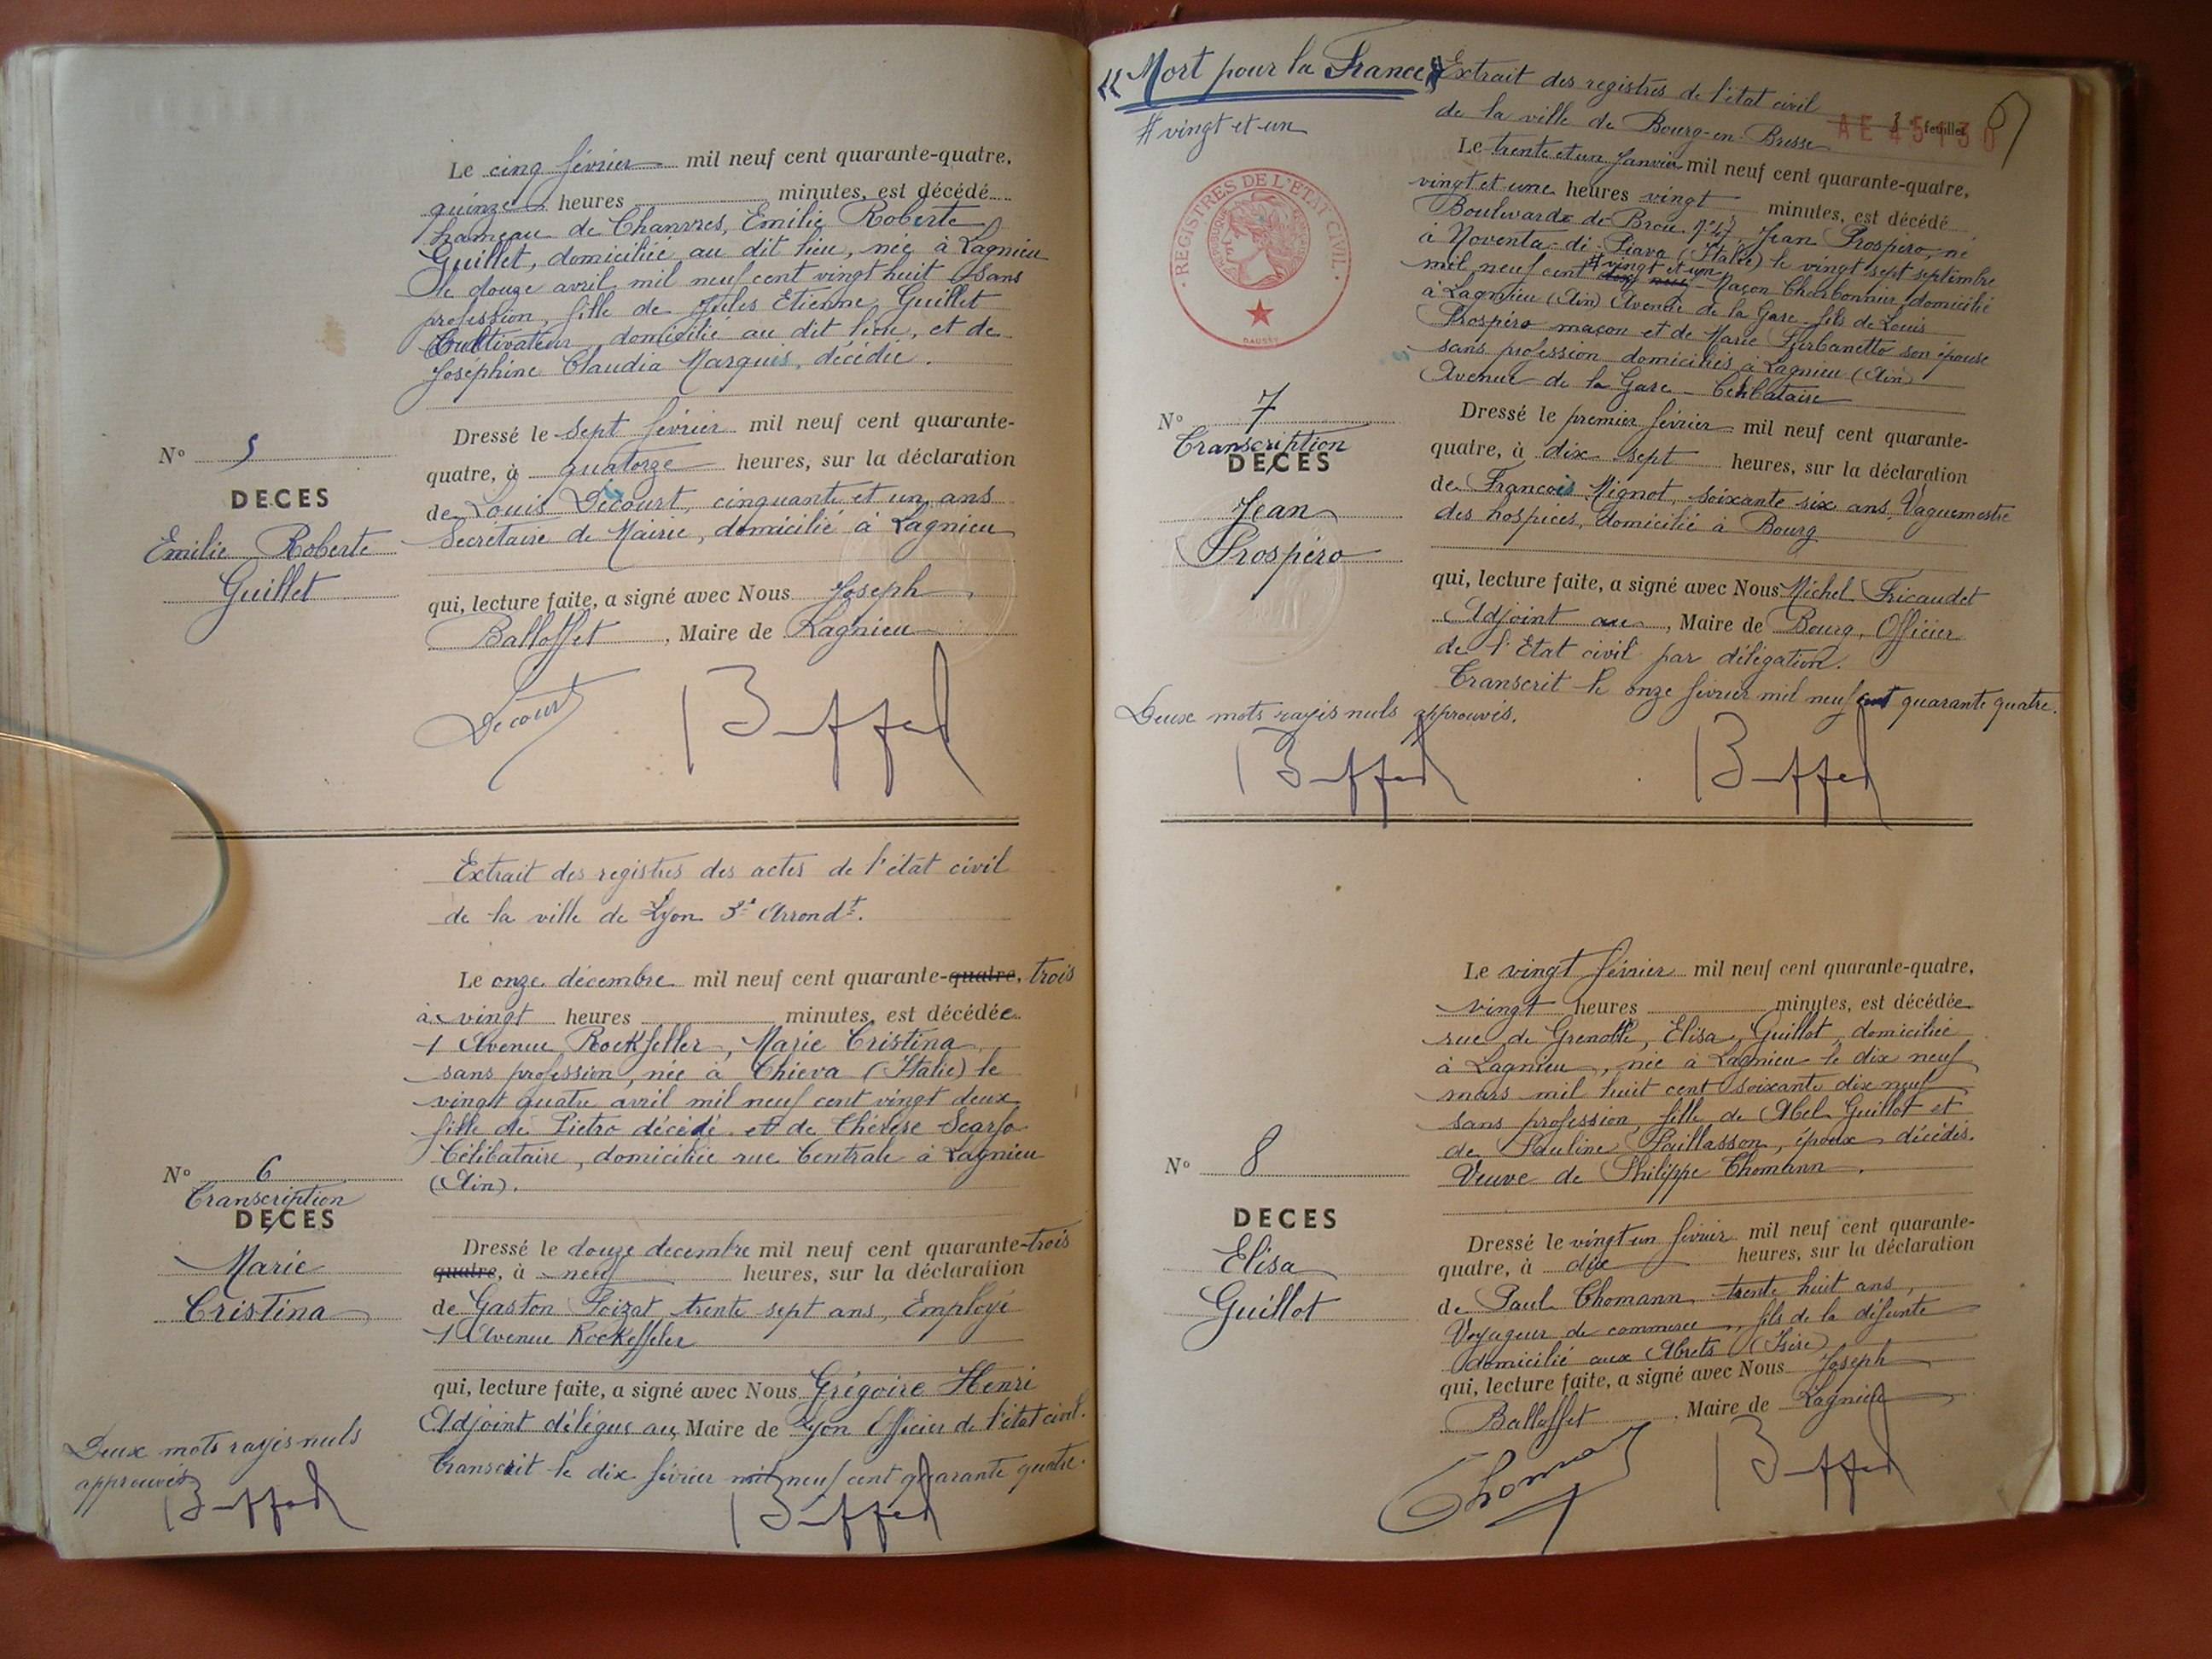 Le cinq février mil neuf cent quarante-quatre,
quinze heures minutes, est décédé
hameau de Chanvres, Emilie Roberte
Guillet, domiciliée au dit lieu, née à Lagnieu
le douze avril mil neuf cent vingt huit sans
profession, fille de Jules Etienne Guillet
Cultivateur, domicilié au dit lieu, et de
Joséphine Claudia Marquis, décédée.
Dressé le sept février mil neuf cent quarante-
quatre, à quatorze heures, sur la déclaration
de Louis Décourt, cinquante et un ans
Secrétaire de Mairie, domicilié à Lagnieu
qui, lecture faite, a signé avec Nous Joseph
Balloffet, Maire de Lagnieu
Decourt
N° 5
DECES
Emilie Roberte
Guillet
Extrait des registres des actes de l'état civil
de la ville de Lyon 3e Arrondt.
Le onze décembre mil neuf cent quarante-quatre, trois
à vingt heures minutes, est décédée
1 Avenue Rockfeller, Marie Cristina
sans profession, née à Chieva (Italie) le
vingt quatre avril mil neuf cent vingt deux
fille de Pietro décédé et de Thérèse Scarfo
Célibataire, domiciliée rue Centrale à Lagnieu
(Ain).
Dressé le douze decembre mil neuf cent quarante-trois
quatre, à neuf heures, sur la déclaration
de Gaston Poizat trente sept ans, Employé
1 Avenue Rockeffeler
qui, lecture faite, a signé avec Nous Grégoire Henri
Adjoint délégué au, Maire de Lyon Officier de l'état civil.
Transcrit le dix février mil neuf cent quarante quatre.
N° 6
Transcription
DECES
Marie
Cristina
Deux mots rayés nuls
approuvés
«Mort pour la France»
# vingt et un
REGISTRES DE L'ETAT CIVIL
Extrait des registres de l'état civil
de la ville de Bourg-en-Bresse
AE 45130
feuillet
Le trente et un Janvier mil neuf cent quarante-quatre,
vingt et une heures vingt minutes, est décédé
Boulevard de Brou n° 47 Jean Prospéro, né
à Noventa-di-Piava (Italie) le vingt sept septembre
mil neuf cent # vingt et un Maçon Charbonnier, domicilié
à Lagnieu (Ain) Avenue de la Gare fils de Louis
Prospéro maçon et de Marie Furbanetto son épouse
sans profession domiciliés à Lagnieu (Ain)
Avenue de la Gare - Célibataire
Dressé le premier février mil neuf cent quarante-
quatre, à dix sept heures, sur la déclaration
de François Mignot, soixante six ans, Vaguemestre
des hospices, domicilié à Bourg
qui, lecture faite, a signé avec Nous Michel Fricaudet
Adjoint au, Maire de Bourg, Officier
de l'Etat civil par délégation.
Transcrit le onze février mil neuf cent quarante quatre.
N° 7
Transcription
DECES
Jean
Prospéro
Deux mots rayés nuls approuvés.
Le vingt février mil neuf cent quarante-quatre,
vingt heures minutes, est décédée
rue de Grenoble, Elisa Guillot, domiciliée
à Lagnieu, née à Lagnieu le dix neuf
mars mil huit cent soixante dix neuf
sans profession, fille de Abel Guillot et
de Pauline Paillasson, époux décédés.
Veuve de Philippe Thomann.
Dressé le vingt un février mil neuf cent quarante-
quatre, à dix heures, sur la déclaration
de Paul Thomann trente huit ans,
Voyageur de commerce, fils de la défunte
domicilié aux Abrets (Isère)
qui, lecture faite, a signé avec Nous Joseph
Balloffet, Maire de Lagnieu
N° 8
DECES
Elisa
Guillot